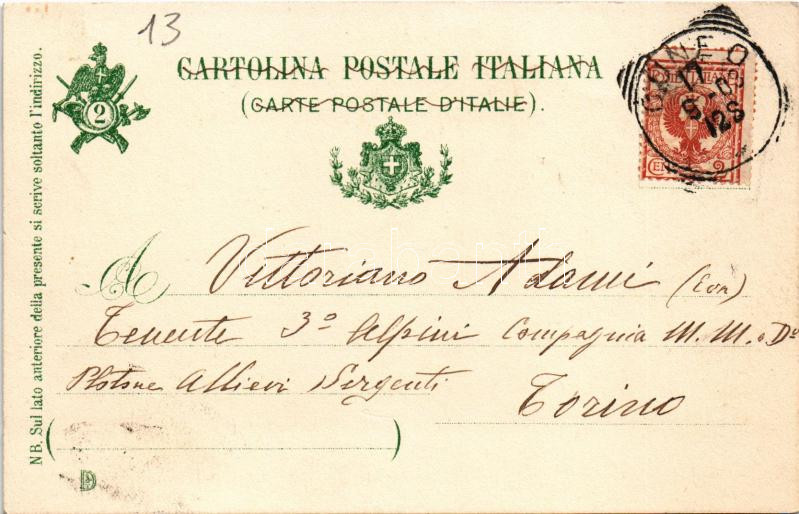 13
CARTOLINA POSTALE ITALIANA
(CARTE POSTALE D'ITALIE).
2
CUNEO
17
12S
A Vittoriano Adami (Con)
Tenente 3º Alpini Compagnia M. M. e Do
Plotone Allievi Sergenti
Torino
NB. Sul lato anteriore della presente si scrive soltanto l'indirizzo.